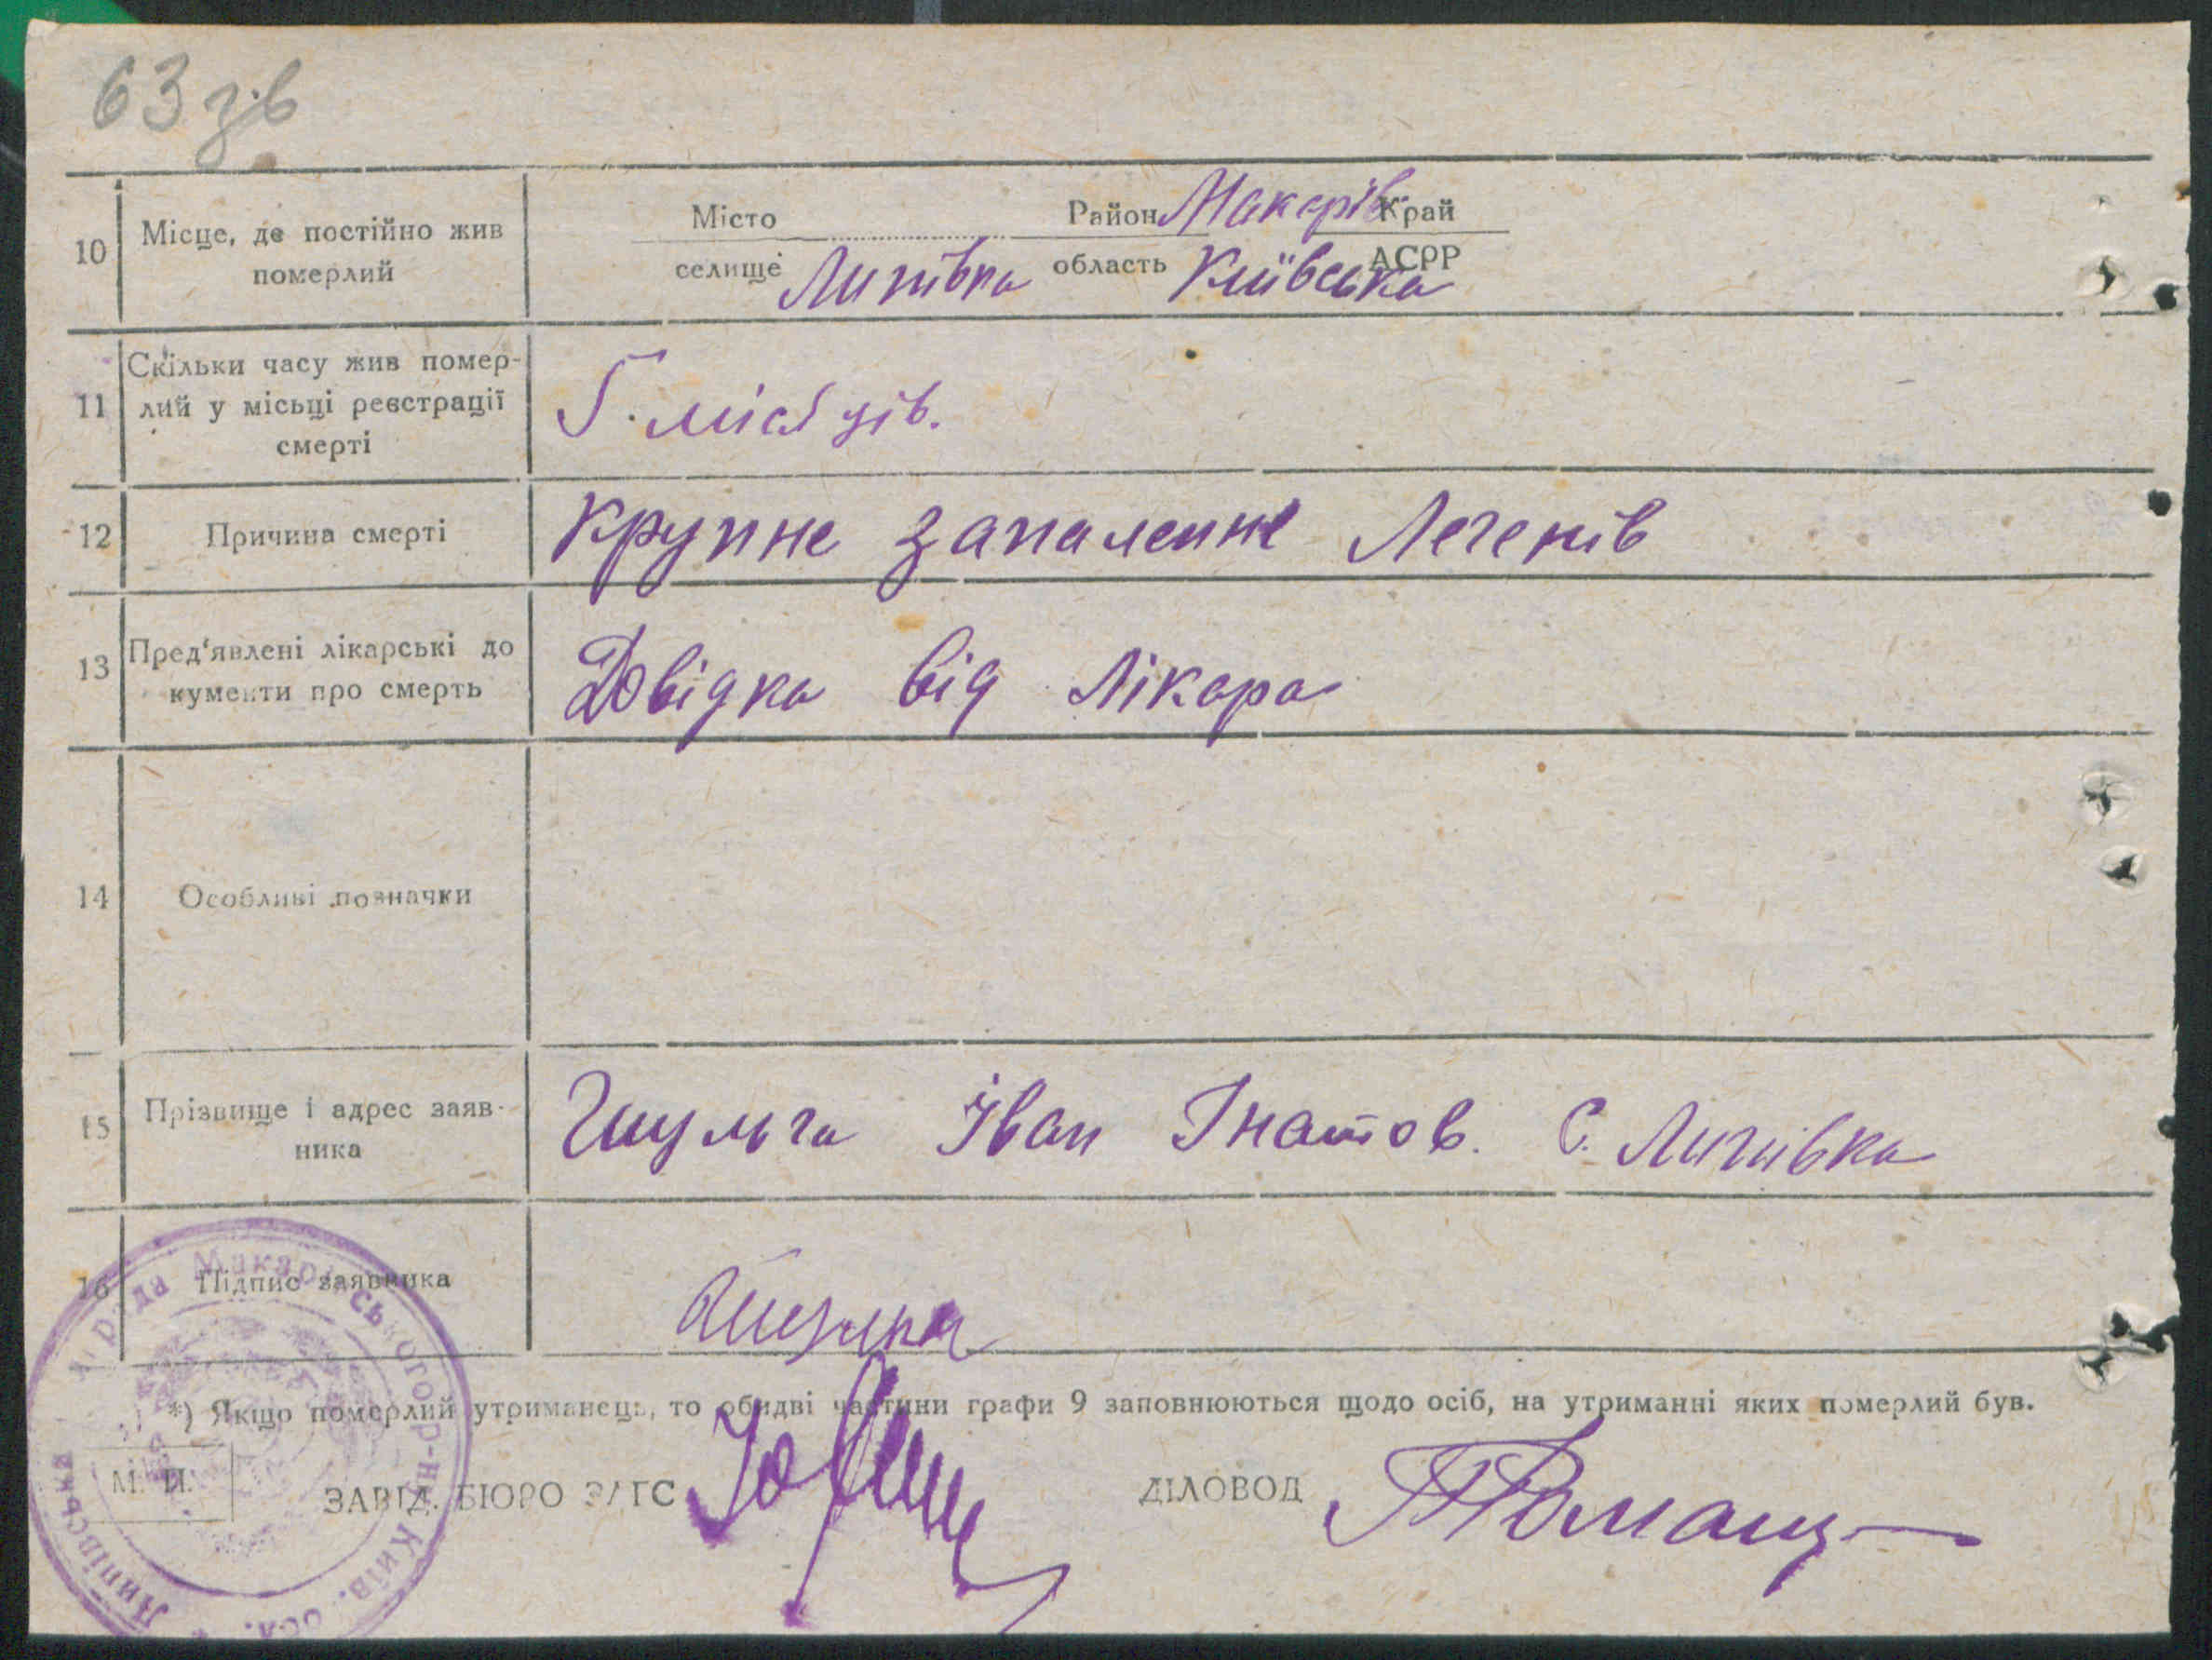 63 зв
10 Місце, де постійно жив померлий
Місто Район Макарів Край
селище Липівка область Київська АСРР
11 Скільки часу жив помер-
лий у місьці реєстрації
смерті
5. місяців.
12 Причина смерті Крупне запаленнє Легенів
13 Пред'явлені лікарські до
кументи про смерть
Довідка від Лікара
14 Особливі позначки
15 Прізвище і адрес заяв-
ника
Шульга Іван Ігнатов. С. Липівка
16 Підпис заявника
*) Якщо померлий утриманець, то обидві частини графи 9 заповнюються щодо осіб, на утриманні яких померлий був.
М. П.
ЗАВІД. БЮРО ЗАГС ДІЛОВОД
Липівська с рада Макарівського р-ну Київ. обл.